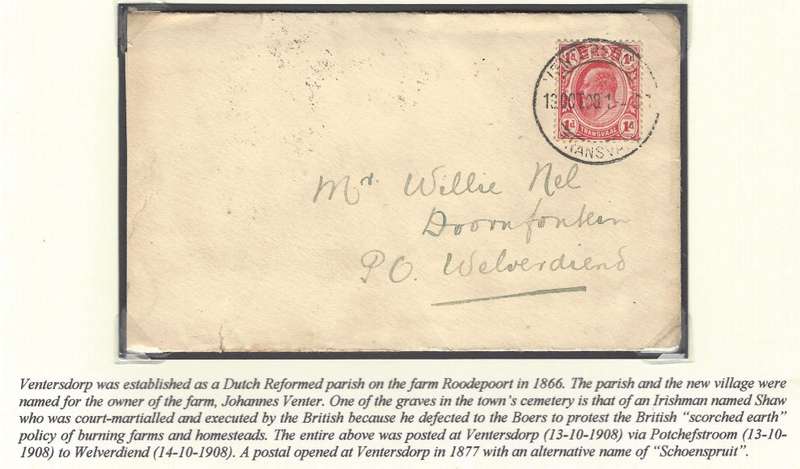 VENTERSDORP
13 OCT 08
1d 1d
TRANSVAAL
TRANSVAAL
Mr. Willie Nel
Doornfontein
P.O. Welverdiend
Ventersdorp was established as a Dutch Reformed parish on the farm Roodepoort in 1866. The parish and the new village were
named for the owner of the farm, Johannes Venter. One of the graves in the town's cemetery is that of an Irishman named Shaw
who was court-martialled and executed by the British because he defected to the Boers to protest the British “scorched earth”
policy of burning farms and homesteads. The entire above was posted at Ventersdorp (13-10-1908) via Potchefstroom (13-10-
1908) to Welverdiend (14-10-1908). A postal opened at Ventersdorp in 1877 with an alternative name of “Schoenspruit”.